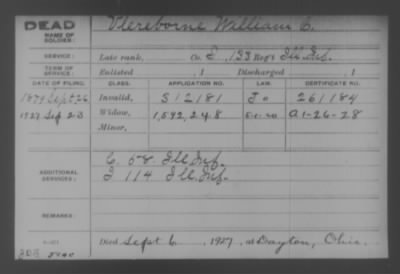 DEAD
NAME OF SOLDIER: William C.
SERVICE: Late rank, Co. I, 133 Reg't Ill. Inf.
TERM OF SERVICE: Enlisted , 1 Discharged , 1
DATE OF FILING. CLASS. APPLICATION NO. LAW. CERTIFICATE NO.
Sept 26 Invalid, 512181 261184
1927 Sep 23 Widow, 1,592,248 5-1-20 A 1-26-28
Minor,
C. 58 Ill. Inf.
ADDITIONAL SERVICES: I 114 Ill. Inf.
REMARKS:
Died Sept 6, 1927, at Dayton, Ohio.